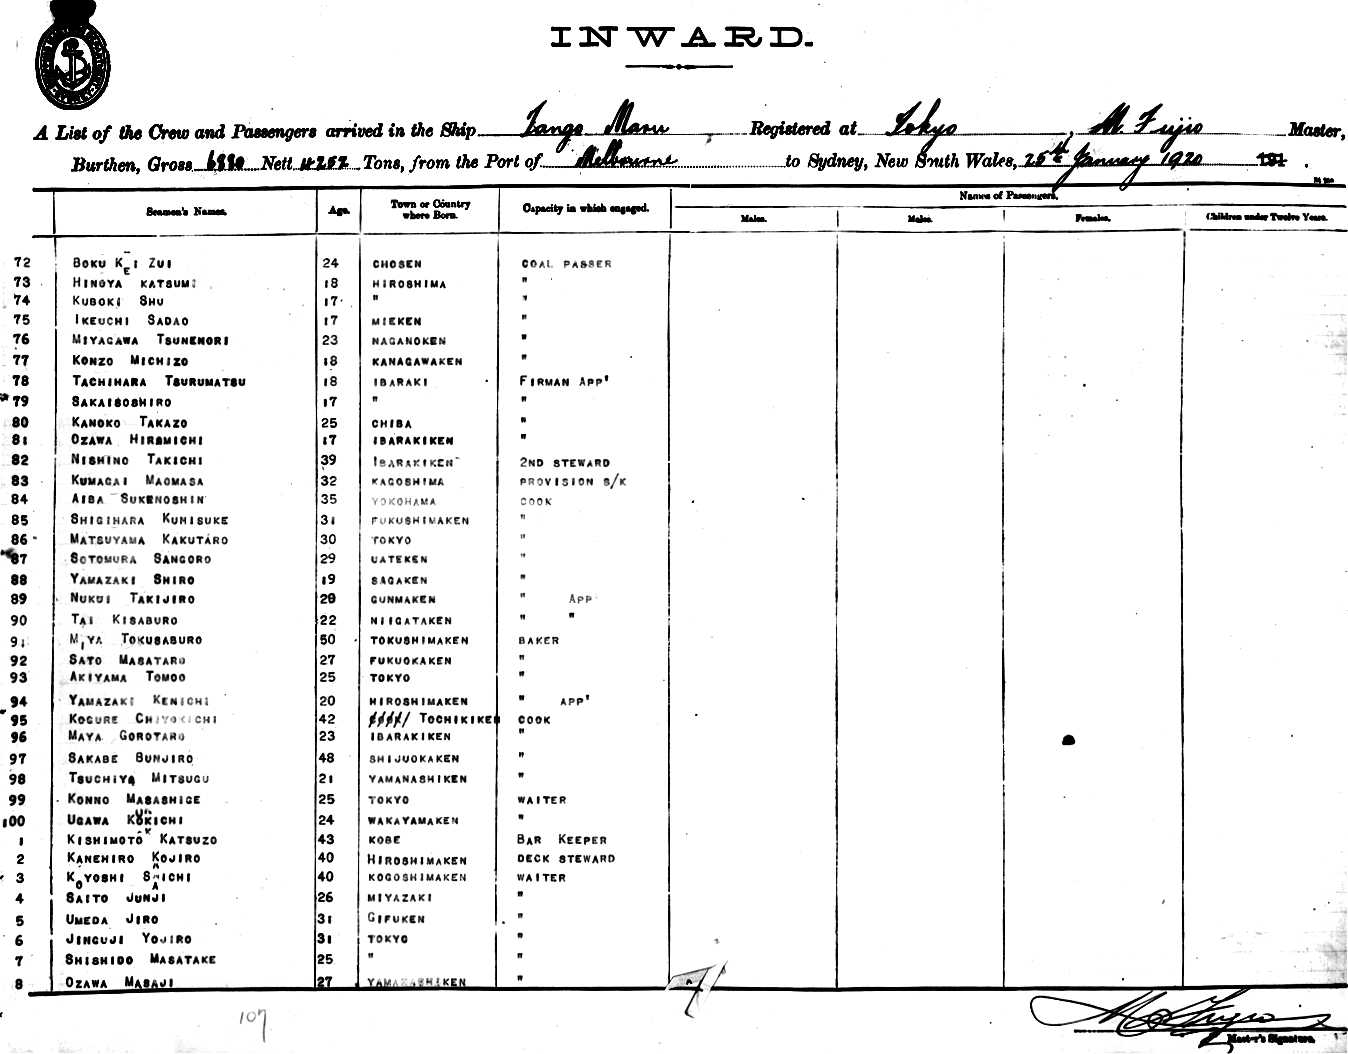 INWARD.
A List of the Crew and Passengers arrived in the Ship Tango Maru Registered at Tokyo, M. Fujio Master,
Burthen, Gross 6880 Nett 4252 Tons, from the Port of Melbourne to Sydney, New South Wales, 25th January 1920 191 .
Seamen's Names. Age. Town or Country where Born. Capacity in which engaged. Names of Passengers.
Males. Males. Females. Children under Twelve Years.
72 BOKU KEI ZUI 24 CHOSEN COAL PASSER
73 HINOYA KATSUMI 18 HIROSHIMA "
74 KUBOKI SHU 17 " "
75 IKEUCHI SADAO 17 MIEKEN "
76 MIYAGAWA TSUNENORI 23 NAGANOKEN "
77 KONZO MICHIZO 18 KANAGAWAKEN "
78 TACHIHARA TSURUMATSU 18 IBARAKI FIRMAN APP'
79 SAKAISOSHIRO 17 " "
80 KANOKO TAKAZO 25 CHIBA "
81 OZAWA HIROMICHI 17 IBARAKIKEN "
82 NISHINO TAKICHI 39 IBARAKIKEN 2ND STEWARD
83 KUMAGAI MAOMASA 32 KAGOSHIMA PROVISION S/K
84 AIBA SUKENOSHIN 35 YOKOHAMA COOK
85 SHIGIHARA KUNISUKE 31 FUKUSHIMAKEN "
86 MATSUYAMA KAKUTARO 30 TOKYO "
87 SOTOMURA SANGORO 29 UATEKEN "
88 YAMAZAKI SHIRO 19 SAGAKEN "
89 NUKUI TAKIJIRO 20 GUNMAKEN " APP
90 TAI KISABURO 22 NIIGATAKEN " "
91 MIYA TOKUSABURO 50 TOKUSHIMAKEN BAKER
92 SATO MASATARO 27 FUKUOKAKEN "
93 AKIYAMA TOMOO 25 TOKYO "
94 YAMAZAKI KENICHI 20 HIROSHIMAKEN " APP'
95 KOGURE CHIYOKICHI 42 TOCHIKIKEN COOK
96 MAYA GOROTARO 23 IBARAKIKEN "
97 SAKABE BUNJIRO 48 SHIJUOKAKEN "
98 TSUCHIYA MITSUGU 21 YAMANASHIKEN "
99 KONNO MASASHIGE 25 TOKYO WAITER
100 UGAWA KUNKICHI 24 WAKAYAMAKEN "
1 KISHIMOTO KATSUZO 43 KOBE BAR KEEPER
2 KANEHIRO KOJIRO 40 HIROSHIMAKEN DECK STEWARD
3 KOYOSHI SAICHI 40 KOGOSHIMAKEN WAITER
4 SAITO JUNJI 26 MIYAZAKI "
5 UMEDA JIRO 31 GIFUKEN "
6 JINGUJI YOJIRO 31 TOKYO "
7 SHISHIDO MASATAKE 25 " "
8 OZAWA MASAJI 27 YAMANASHIKEN "
107
M. Fujio
Master's Signature.